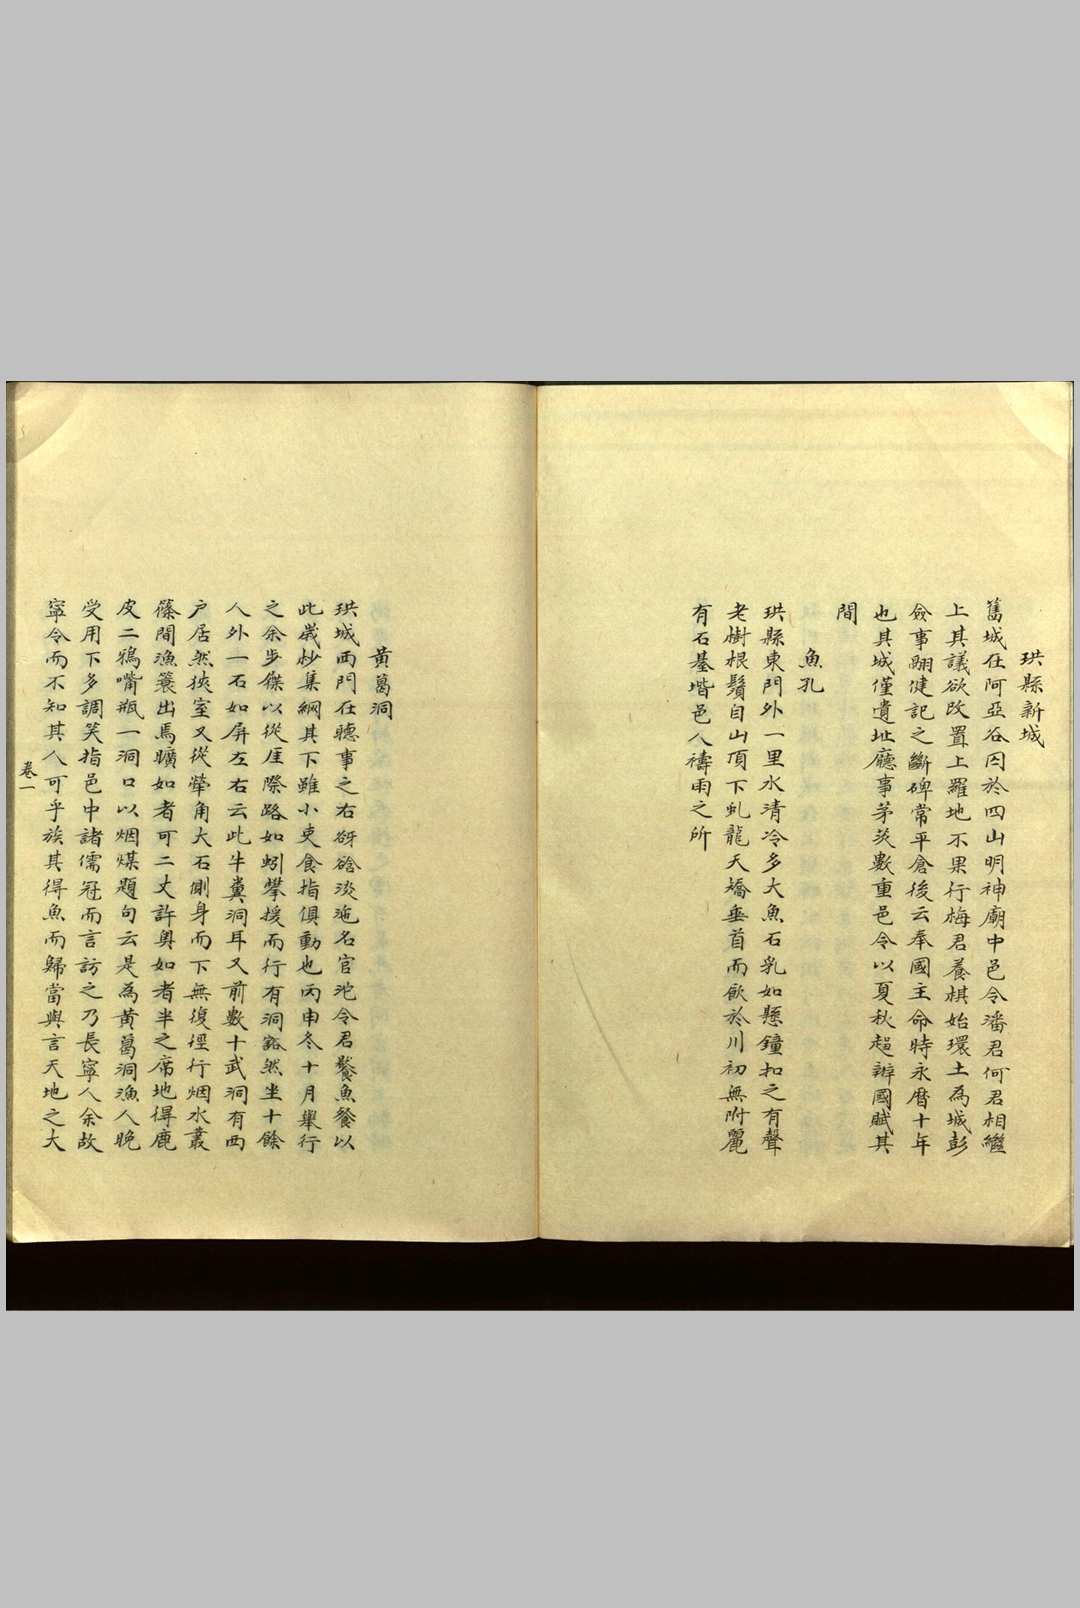 珙縣新城
舊城在阿亞谷囚於四山明神廟中邑令潘君何君相繼
上其議欲改置上羅地不果行梅君養棋始環土為城彭
僉事翮健記之斷碑常平倉後云奉國主命時永曆十年
也其城僅遺址廳事茅茨數重邑令以夏秋趨辦國賦其
間
魚孔
珙縣東門外一里水清冷多大魚石乳如懸鐘扣之有聲
老樹根鬚自山頂下虬龍天矯垂首而飲於川初無附麗
有石基堦邑人禱雨之所
黃葛洞
珙城西門在聽事之右砑硲淡沲名官沱令君鬻魚餐以
此歲杪集網其下雖小吏食指俱動也丙申冬十月舉行
之余步屧以從厓際路如蚓攀援而行有洞豁然坐十餘
人外一石如屏左右云此牛糞洞耳又前數十武洞有西
户居然狹室又從犖角大石側身而下無復徑行烟水叢
篠間漁簑出焉曠如者可二丈許奧如者半之席地得鹿
皮二鴉嘴瓶一洞口以烟煤題句云是為黃葛洞漁人晚
受用下多調笑指邑中諸儒冠而言訪之乃長寧人余故
寧令而不知其人可乎族其得魚而歸當與言天地之大
卷一